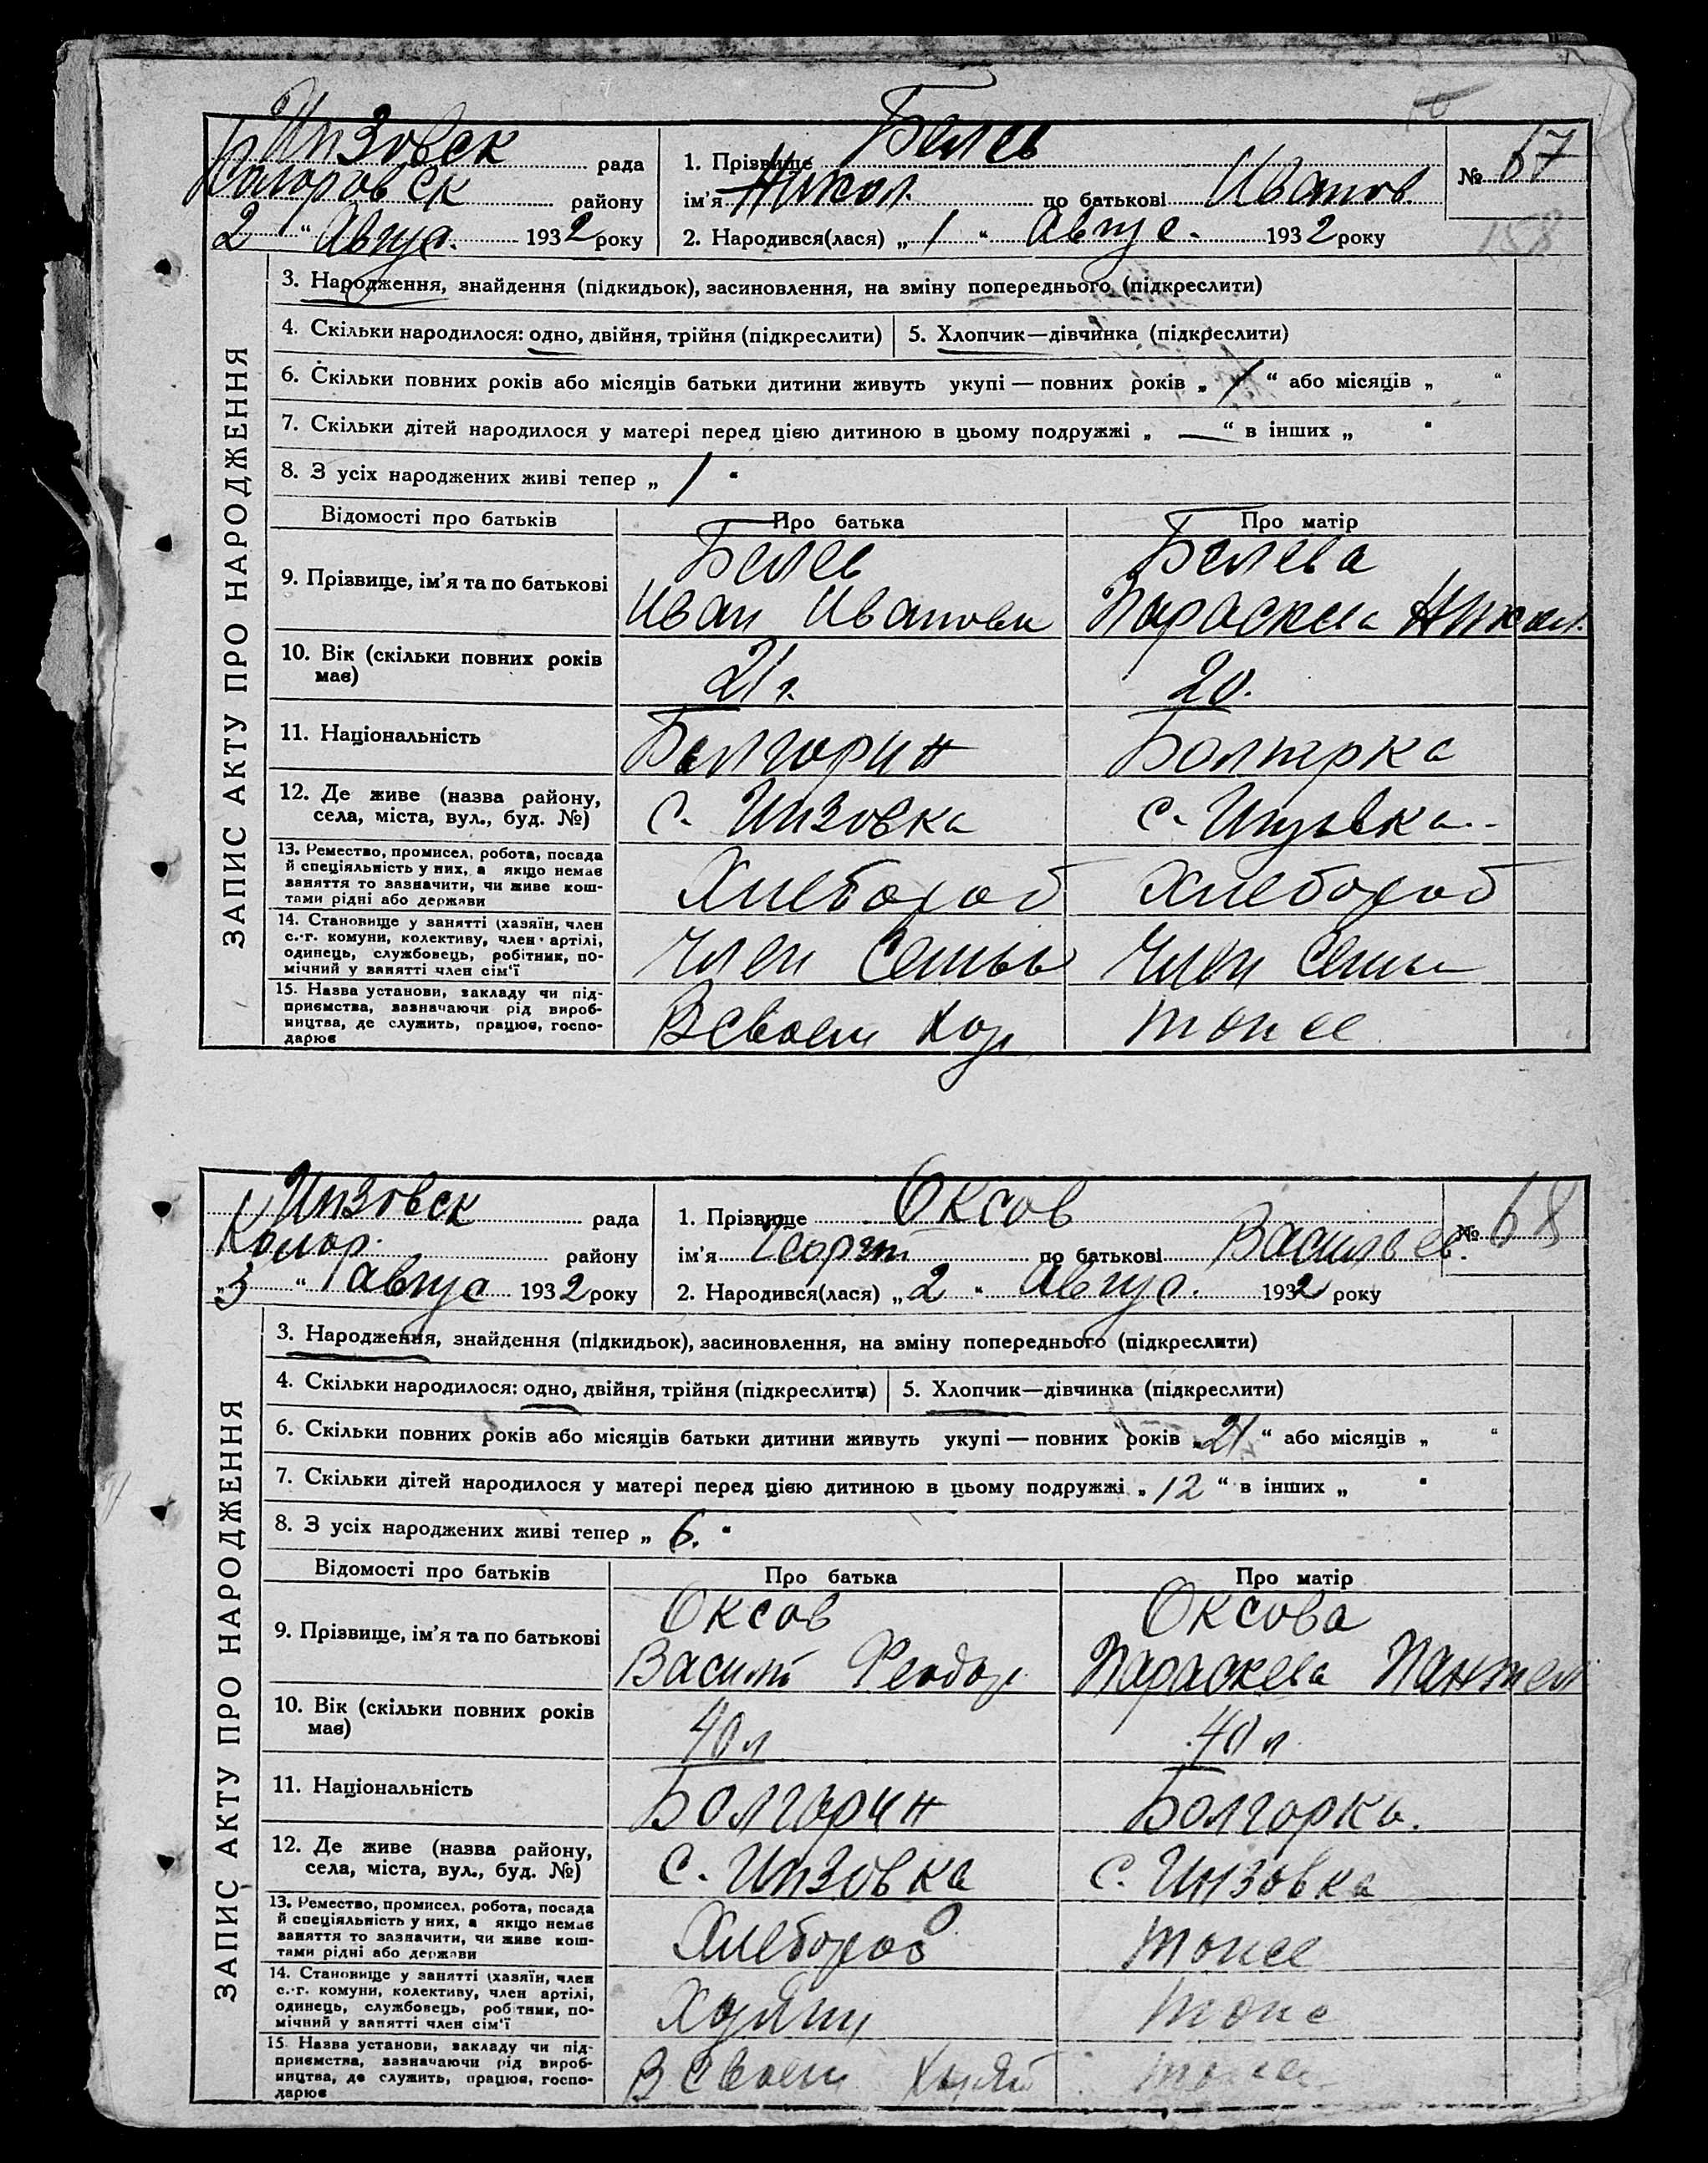 Инзовск рада
Коларовск району
2 " Авгус. 1932 року
1. Прізвище Белев
ім'я Никол. по батькові Иванов.
2. Народився(лася) „ 1 " Авгус. 1932 року
№ 67
158
ЗАПИС АКТУ ПРО НАРОДЖЕННЯ
3. Народження, знайдення (підкидьок), засиновлення, на зміну попереднього (підкреслити)
4. Скільки народилося: одно, двійня, трійня (підкреслити) 5. Хлопчик—дівчинка (підкреслити)
6. Скільки повних років або місяців батьки дитини живуть укупі — повних років „ 1 " або місяців „ "
7. Скільки дітей народилося у матері перед цією дитиною в цьому подружжі „ — " в інших „ "
8. З усіх народжених живі тепер „ 1 "
Відомості про батьків Про батька Про матір
9. Прізвище, ім'я та по батькові
Белев
Иван Иванови
Белева
Параскева Никол.
10. Вік (скільки повних років
має)
21 г. 20.
11. Національність Болгорин Болгарка
12. Де живе (назва району,
села, міста, вул., буд. №)
с. Инзовка с. Инзовка
13. Ремество, промисел, робота, посада
й спеціяльність у них, а якщо немає
заняття то зазначити, чи живе кош-
тами рідні або держави
Хлебороб Хлебороб
14. Становище у занятті (хазяїн, член
с.-г. комуни, колективу, член артілі,
одинець, службовець, робітник, по-
мічний у занятті член сім'ї
Член Семьи Член Семьи
15. Назва установи, закладу чи під-
приємства, зазначаючи рід вироб-
ництва, де служить, працює, госпо-
дарює
В своем хоз тоже
Инзовск рада
Колар. району
„ 3 " августа 1932 року
1. Прізвище Оксов
ім'я Георгий по батькові Васильев.
2. Народився(лася) „ 2 " Авгус. 1932 року
№ 68
ЗАПИС АКТУ ПРО НАРОДЖЕННЯ
3. Народження, знайдення (підкидьок), засиновлення, на зміну попереднього (підкреслити)
4. Скільки народилося: одно, двійня, трійня (підкреслити) 5. Хлопчик—дівчинка (підкреслити)
6. Скільки повних років або місяців батьки дитини живуть укупі — повних років „ 21 " або місяців „ "
7. Скільки дітей народилося у матері перед цією дитиною в цьому подружжі „ 12 " в інших „ "
8. З усіх народжених живі тепер „ 6. "
Відомості про батьків Про батька Про матір
9. Прізвище, ім'я та по батькові
Оксов
Василий Феодор
Оксова
Параскева Пантел
10. Вік (скільки повних років
має)
40 л 40 л
11. Національність Болгорин Болгорка.
12. Де живе (назва району,
села, міста, вул., буд. №)
с. Инзовка с. Инзовка
13. Ремество, промисел, робота, посада
й спеціяльність у них, а якщо немає
заняття то зазначити, чи живе кош-
тами рідні або держави
Хлебороб тоже
14. Становище у занятті (хазяїн, член
с.-г. комуни, колективу, член артілі,
одинець, службовець, робітник, по-
мічний у занятті член сім'ї
Хозяин тоже
15. Назва установи, закладу чи під-
приємства, зазначаючи рід вироб-
ництва, де служить, працює, госпо-
дарює
В своем хозяй тоже